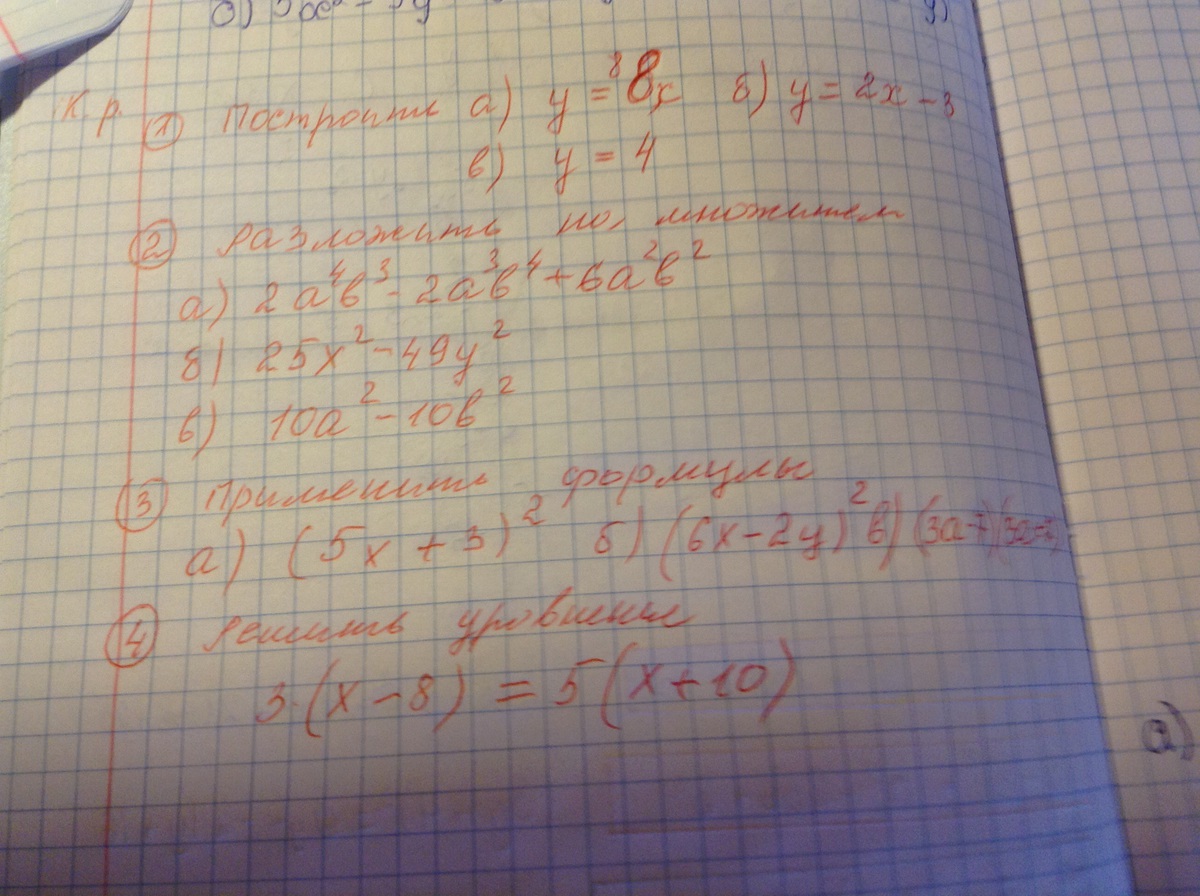 К. р. ① Построить а) y = 8x б) y = 2x - 3
в) y = 4
② Разложить по множителем
а) 2a⁴b³ - 2a³b⁴ + 6a²b²
б) 25x² - 49y²
в) 10a² - 10b²
③ Применить формулы
а) (5x + 3)² б) (6x - 2y)² в)
④ Решить
3·(x - 8) = 5(x + 10)
а)